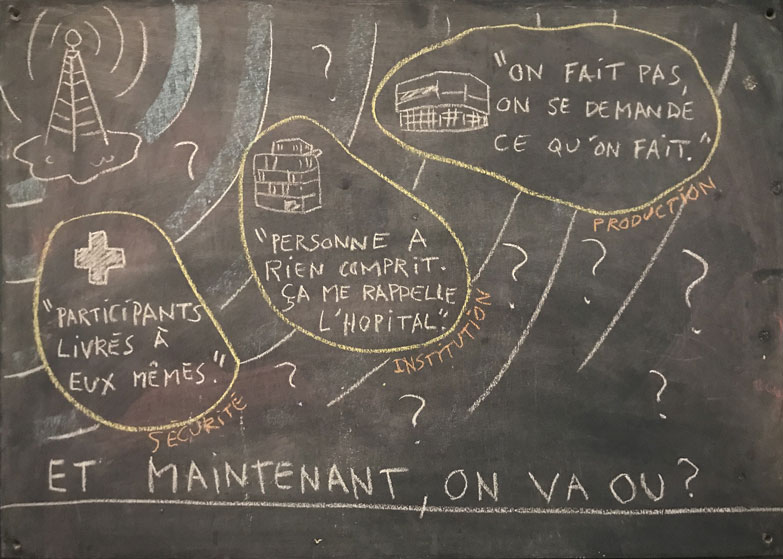 "ON FAIT PAS,
ON SE DEMANDE
CE QU'ON FAIT."
PRODUCTION
"PERSONNE A
RIEN COMPRIT.
ÇA ME RAPPELLE
L'HOPITAL."
INSTITUTION
"PARTICIPANTS
LIVRÉS À
EUX MÊMES."
SÉCURITÉ
? ? ? ? ? ? ? ?
ET MAINTENANT, ON VA OU?